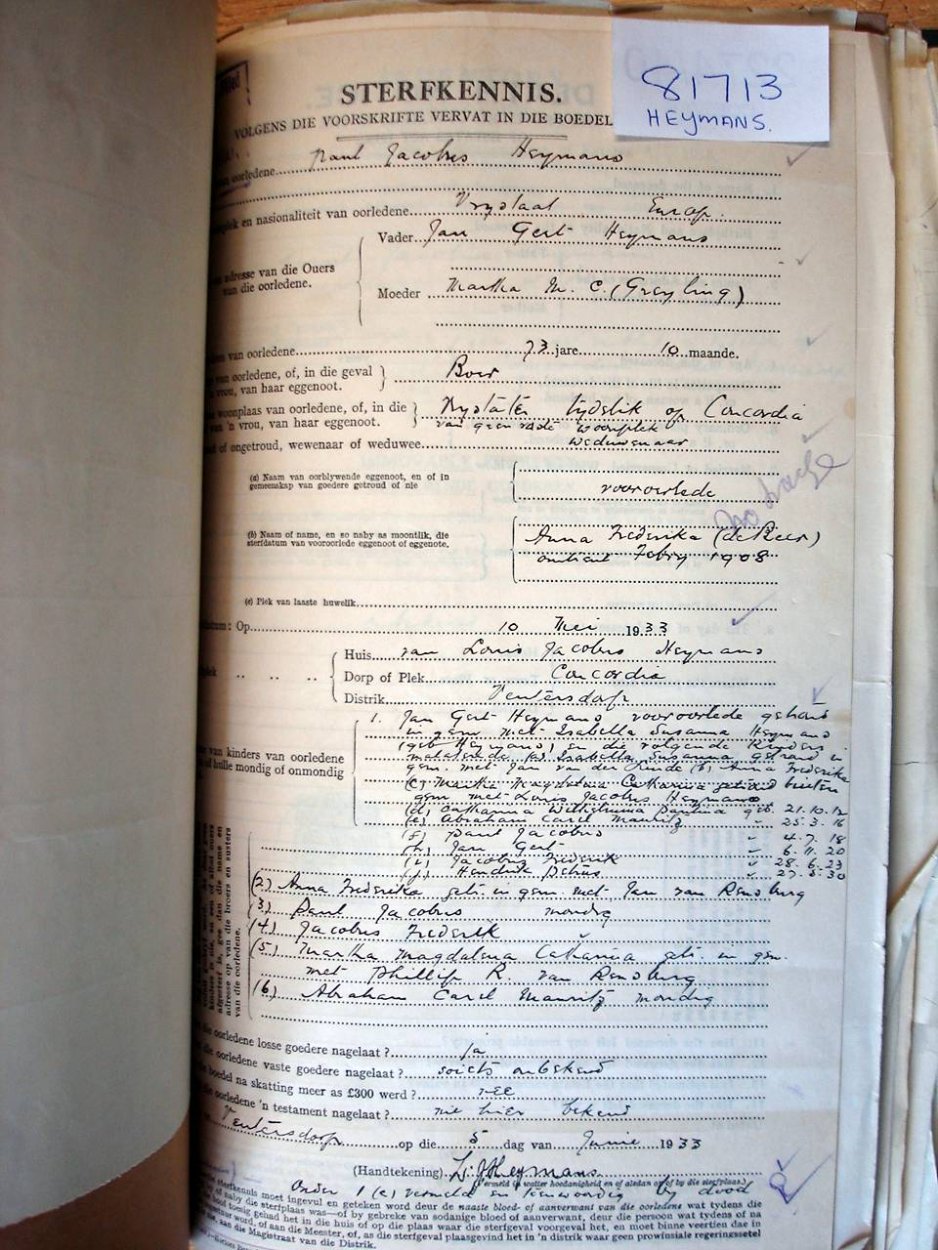 81713
HEYMANS.
STERFKENNIS.
VOLGENS DIE VOORSKRIFTE VERVAT IN DIE BOEDEL
oorledene Paul Jacobus Heymans
en nasionaliteit van oorledene Vrystaat Europ.
Vader Jan Gert Heymans
adresse van die Ouers
van die oorledene.
Moeder Martha M. C. (Greyling)
van oorledene 73 jare 10 maande.
van oorledene, of, in die geval
vrou, van haar eggenoot. Boer
woonplaas van oorledene, of, in die
van 'n vrou, van haar eggenoot. tydelik op Concordia
van geen vaste woonplek
of ongetroud, wewenaar of weduwee weduwenaar
(a) Naam van oorblywende eggenoot, en of in
gemeenskap van goedere getroud of nie
vooroorlede
(b) Naam of name, en so naby as moontlik, die
sterfdatum van vooroorlede eggenoot of eggenote.
Anna Frederika (de Beer)
omtrent Febry 1908
(c) Plek van laaste huwelik
Op 10 Mei 1933
Huis van Louis Jacobus Heymans
Dorp of Plek Concordia
Distrik Ventersdorp
van kinders van oorledene
of hulle mondig of onmondig
1. Jan Gert Heymans vooroorlede
in gem. met Isabella Susanna Heymans
(geb Heymans) en die volgende kinders
(a) Isabella Susanna getroud in
gem. met Jan van der (b) Anna Frederika
(c) Martha Magdalena Catharina getroud buiten
gem met Louis Jacobus Heymans
(d) Catharina Wilhelmina geb. 21.10.12
(e) Abraham Carel Mauritz " 25.3.16
(f) Paul Jacobus " 4.7.18
(h) Jan Gert " 6.11.20
(i) Jacobus Frederik " 28.6.23
(j) Hendrik Petrus " 27.5.30
(2) Anna Frederika get. in gem. met Jan van Rensburg
(3) Paul Jacobus mondig
(4) Jacobus Frederik "
(5) Martha Magdalena Catharina get. in gem.
met Phillip R. van Rensburg
(6) Abraham Carel Mauritz mondig
adresse op van die broers en susters
van die oorledene.
die oorledene losse goedere nagelaat ? Ja
die oorledene vaste goedere nagelaat ? soiets onbekend
boedel na skatting meer as £300 werd ? nee
oorledene 'n testament nagelaat ? nie hier bekend
Ventersdorp op die 5 dag van Junie 1933
(Handtekening) L. J. Heymans
Onder 1(c) vermeld en teenwoordig by dood
sterfkennis moet ingevul en geteken word deur de naaste bloed- of aanverwant van die oorledene wat tydens die
naby die sterfplaas was—of by gebreke van sodanige bloed of aanverwant, deur die persoon wat tydens of na
die dood toesig gehad het in die huis of op die plaas waar die sterfgeval voorgeval het, en moet binne veertien dae in
of aan die Meester, of, as die sterfgeval plaasgevind het in 'n distrik waar geen prowinsiale regeringssetel
aan die Magistraat van die Distrik.